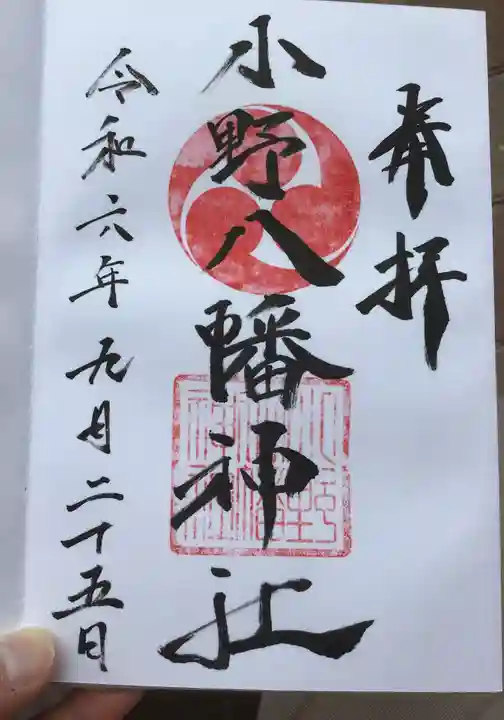 奉拝
小野八幡神社
令和六年九月二十五日